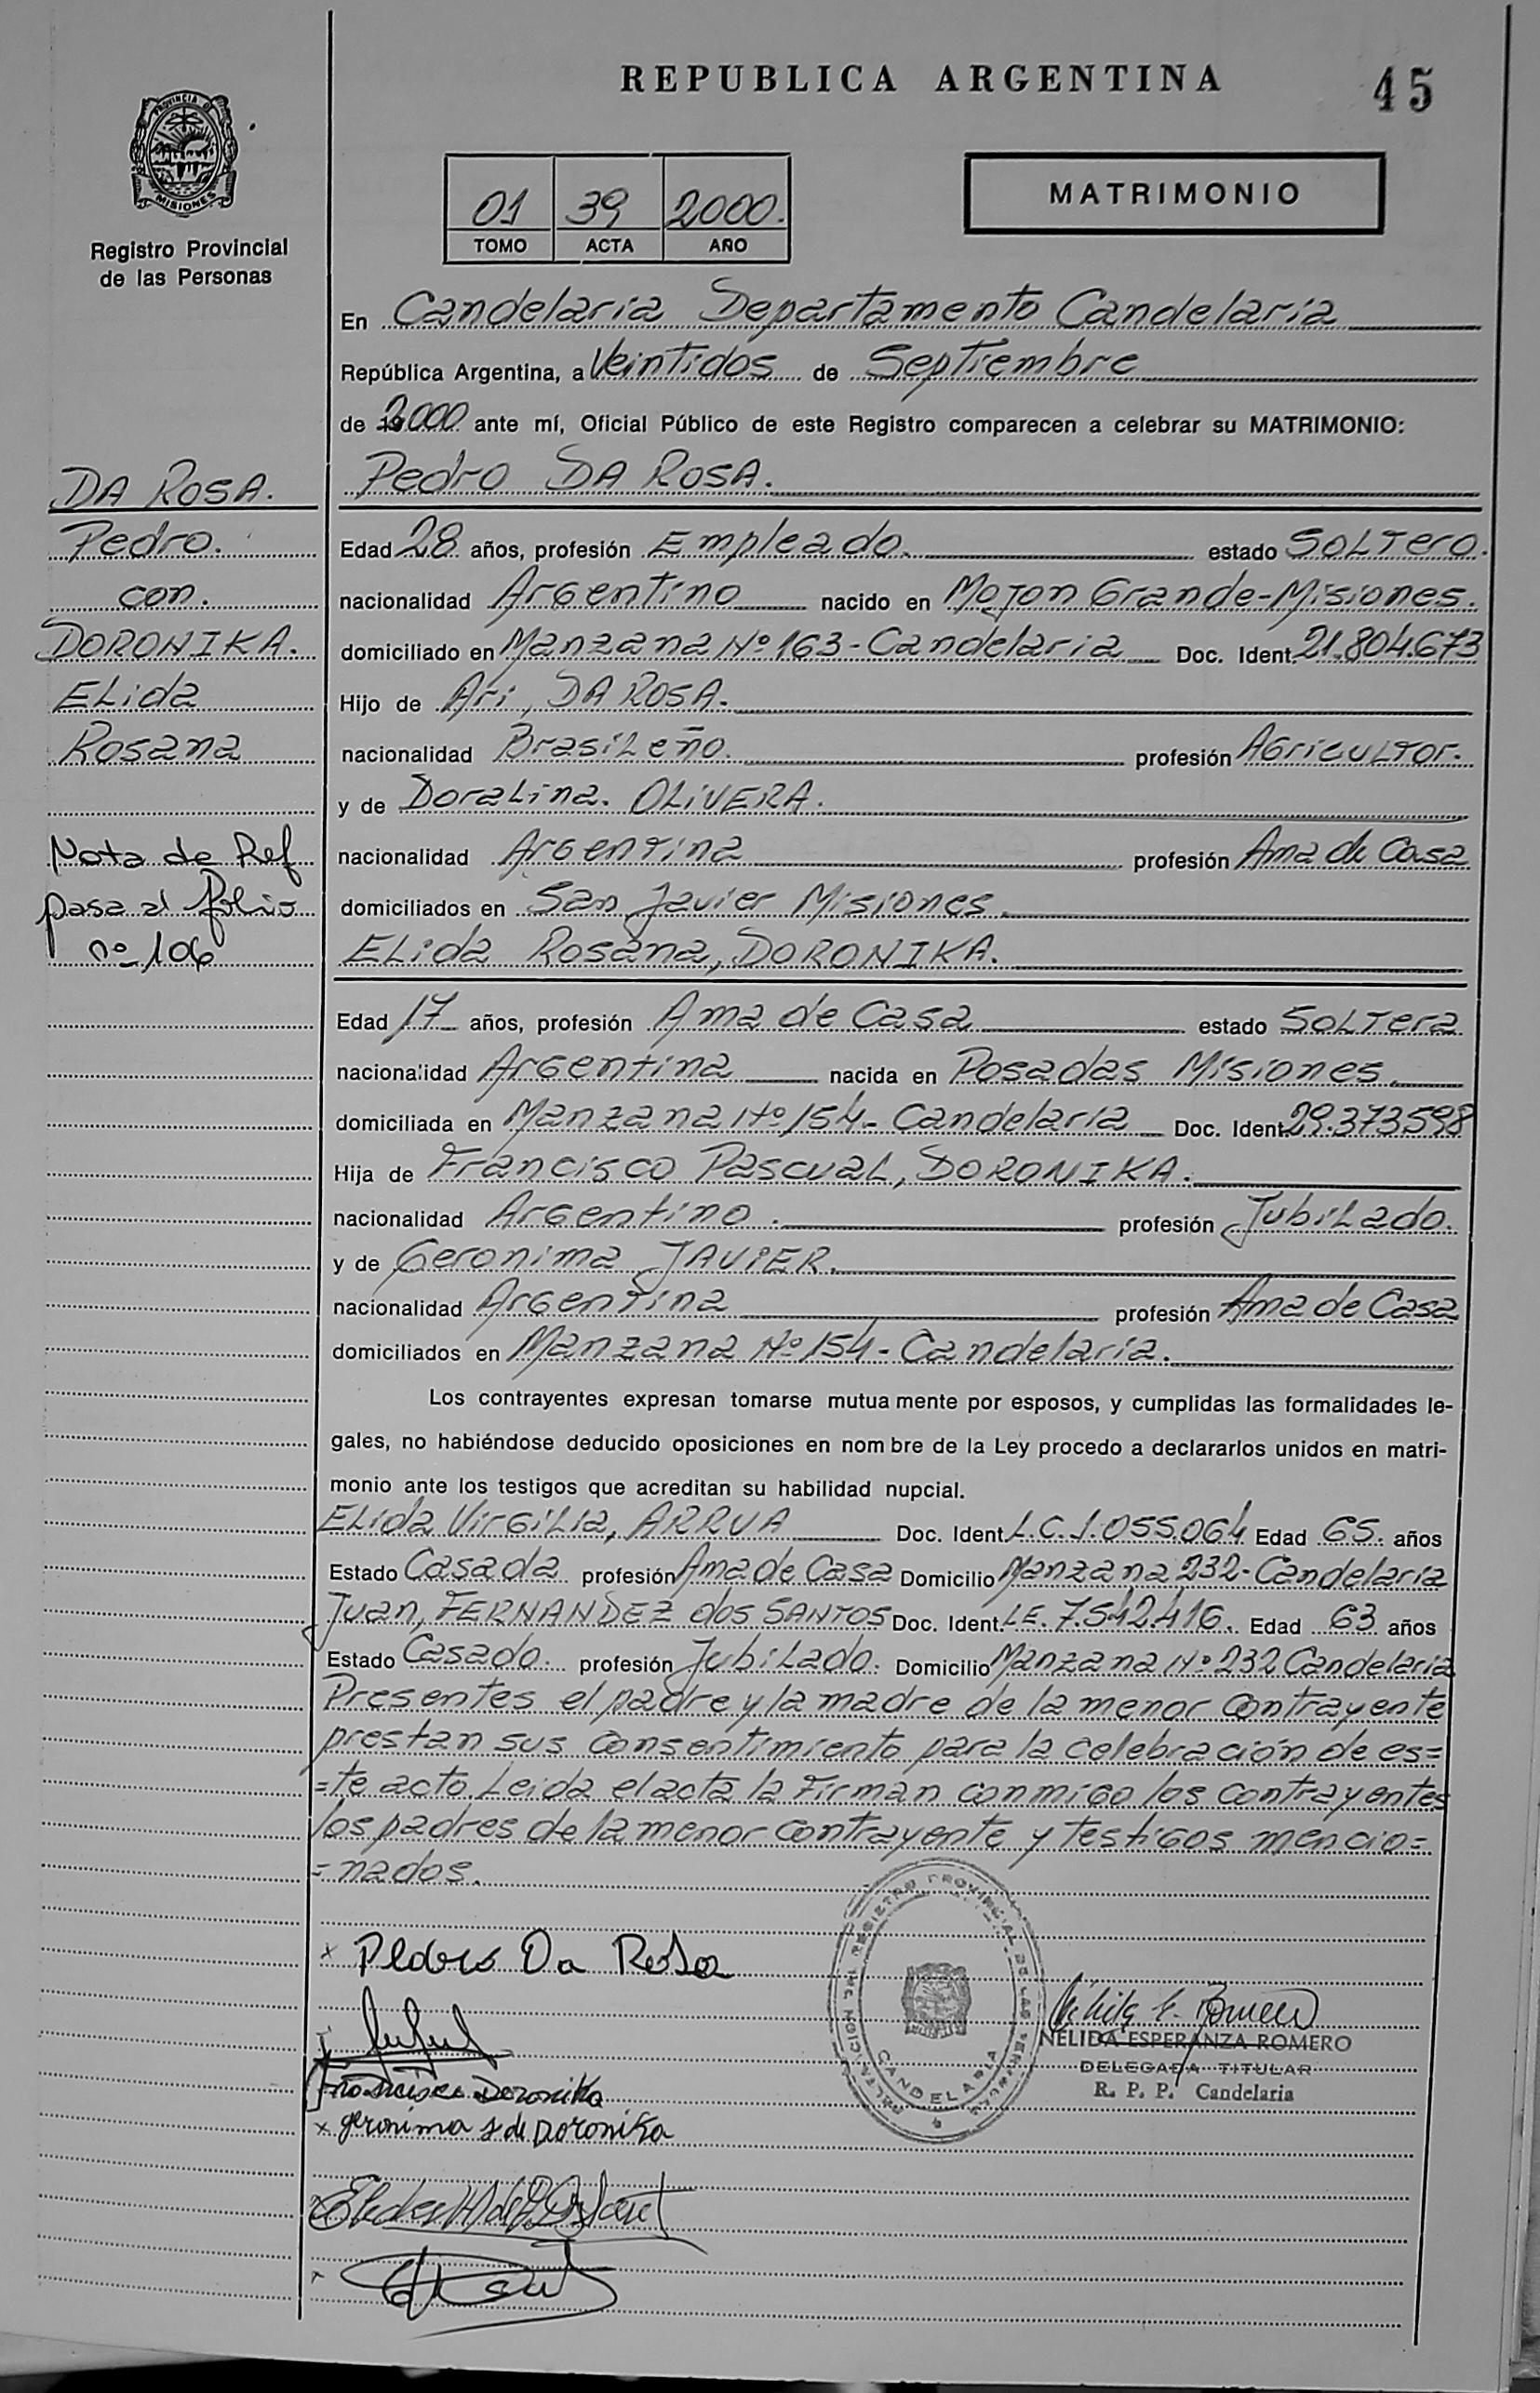 REPUBLICA ARGENTINA
45
PROVINCIA D
MISIONES
Registro Provincial
de las Personas
01 39 2000.
TOMO ACTA AÑO
MATRIMONIO
En Candelaria Departamento Candelaria
República Argentina, a Veintidos de Septiembre
de 2000 ante mí, Oficial Público de este Registro comparecen a celebrar su MATRIMONIO:
Pedro DA ROSA.
Edad 28 años, profesión Empleado. estado SOLTero.
nacionalidad Argentino nacido en Mojon Grande-Misiones.
domiciliado en Manzana Nº 163-Candelaria Doc. Ident. 21.804.673
Hijo de Ari, DA ROSA.
nacionalidad Brasileño. profesión Agricultor.
y de Doralina. OLIVERA.
nacionalidad Argentina profesión Ama de Casa
domiciliados en San Javier Misiones.
Elida Rosana, DORONIKA.
Edad 17 años, profesión Ama de Casa estado SOLTera
nacionalidad Argentina nacida en Posadas Misiones.
domiciliada en Manzana Nº 154-Candelaria Doc. Ident. 29.373.598
Hija de Francisco Pascual, DORONIKA.
nacionalidad Argentino. profesión Jubilado.
y de Geronima JAVIER.
nacionalidad Argentina profesión Ama de Casa
domiciliados en Manzana Nº 154-Candelaria.
Los contrayentes expresan tomarse mutua mente por esposos, y cumplidas las formalidades le-
gales, no habiéndose deducido oposiciones en nom bre de la Ley procedo a declararlos unidos en matri-
monio ante los testigos que acreditan su habilidad nupcial.
Elida Virgilia, ARRUA Doc. Ident. L.C.1.055.064 Edad 65. años
Estado Casada profesión Ama de Casa Domicilio Manzana 232-Candelaria
Juan, FERNANDEZ dos SANTOS Doc. Ident. L.E. 7.542.416. Edad 63 años
Estado Casado. profesión Jubilado. Domicilio Manzana Nº 232 Candelaria
Presentes el padre y la madre de la menor contrayente
prestan sus consentimiento para la celebración de es=
=te acto. Leida el acta la Firman conmigo los contrayentes
los padres de la menor contrayente y testigos mencio=
=nados.
DA ROSA.
Pedro.
con.
DORONIKA.
Elida
Rosana
Nota de Ref
pasa al folio
nº 106
x Pedro Da Rosa
Francisco Doronika
x geronima J de Doronika
REGISTRO PROVINCIAL DE LAS PERSONAS
CANDELARIA
NELIDA ESPERANZA ROMERO
DELEGADA TITULAR
R. P. P. Candelaria